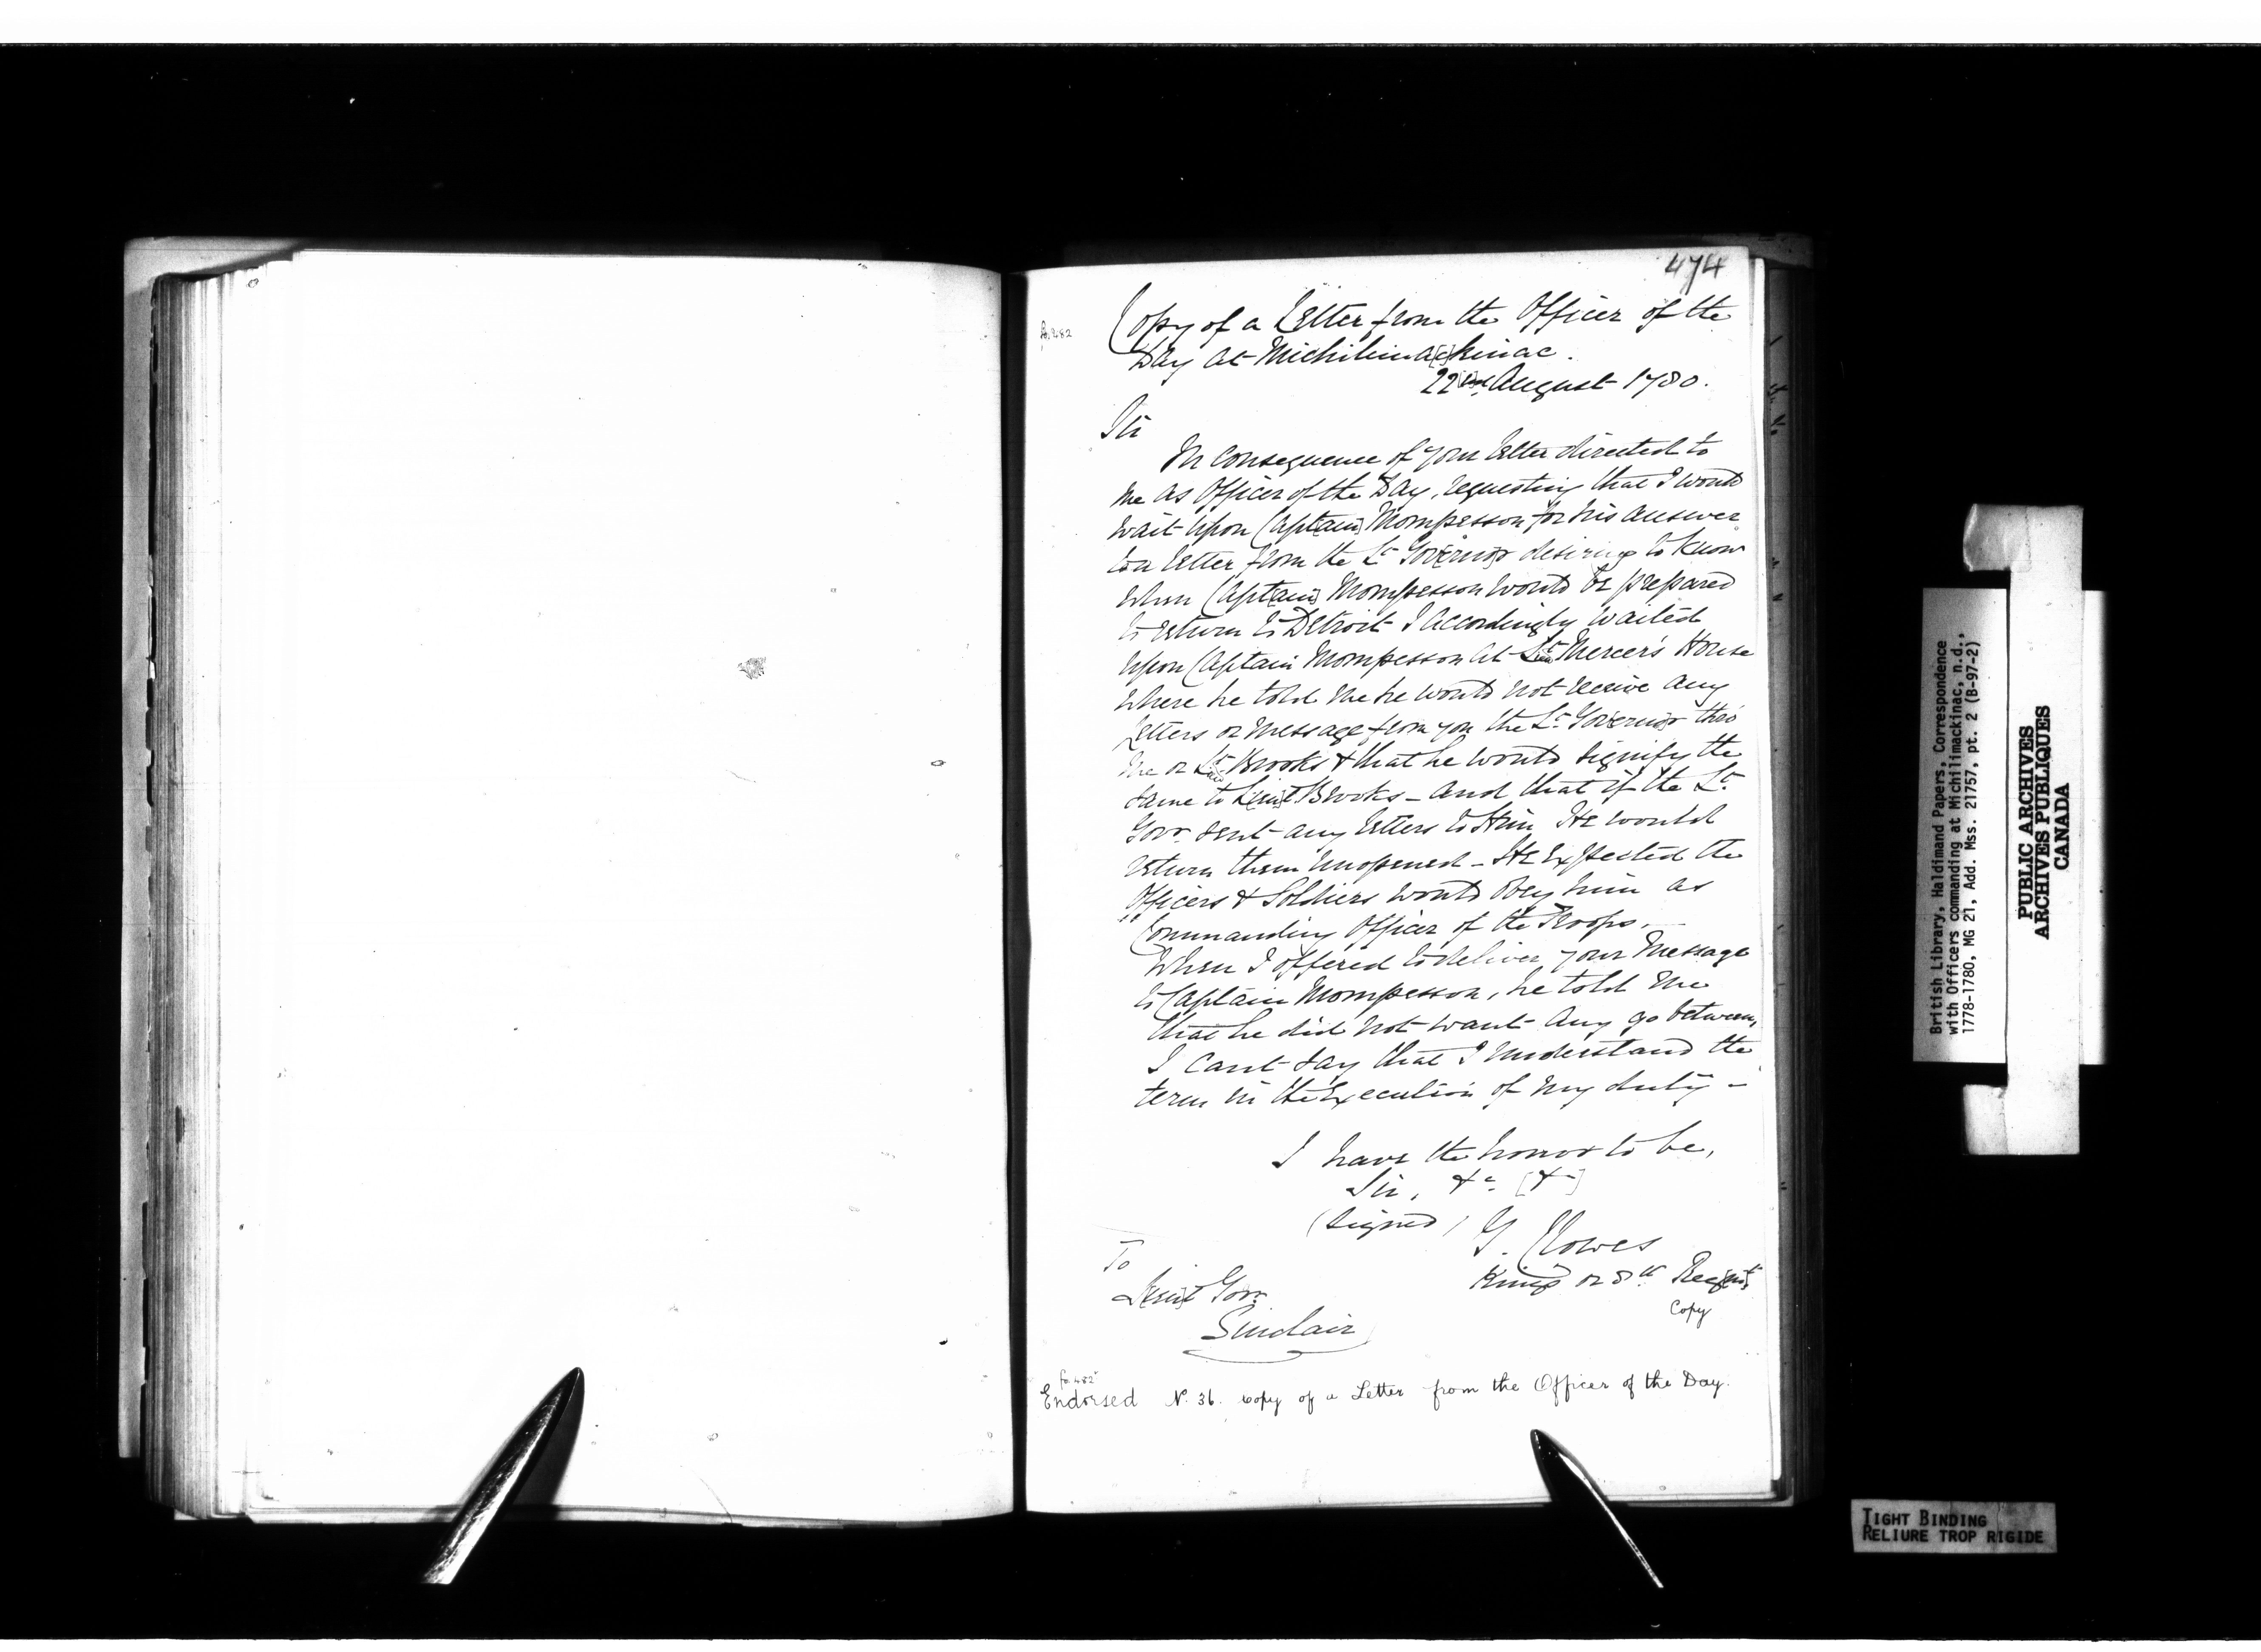 474
fo. 482
Copy of a Letter from the Officer of the
Day at Michilima[c]kinac.
22nd August 1780.
Sir
In consequence of your letter directed to
me as Officer of the Day, requesting that I would
wait upon Capt[ain] Mompesson for his answer
to a letter from the Lt Gov[erno]r desiring to know
when Capt[ain] Mompesson would be prepared
to return to Detroit I accordingly waited
upon Captain Mompesson at Lt Mercer's House
where he told me he would not receive any
Letters or message from you the Lt Gov[erno]r thro'
me or Lt Brooks & that he would signify the
same to L[ieu]t Brooks – and that if the Lt
Govr sent any letters to Him He would
return them unopened – He Expected the
Officers & Soldiers would obey him as
Commanding Officer of the Troops. –
When I offered to deliver your message
to Captain Mompesson, he told me
that he did not want any go between,
I cant say that I understand the
term in the Execution of my duty –
I have the honor to be,
Sir, &c. [&c]
(Signed) G. Clowes
King's or 8th Reg[imen]t
Copy
To
L[ieu]t Govr
Sinclair
fo. 482
Endorsed N. 36. copy of a Letter from the Officer of the Day.
British Library, Haldimand Papers, Correspondence
with Officers commanding at Michilimackinac, n.d.,
1778-1780, MG 21, Add. Mss. 21757, pt. 2 (B-97-2)
PUBLIC ARCHIVES
ARCHIVES PUBLIQUES
CANADA
TIGHT BINDING
RELIURE TROP RIGIDE